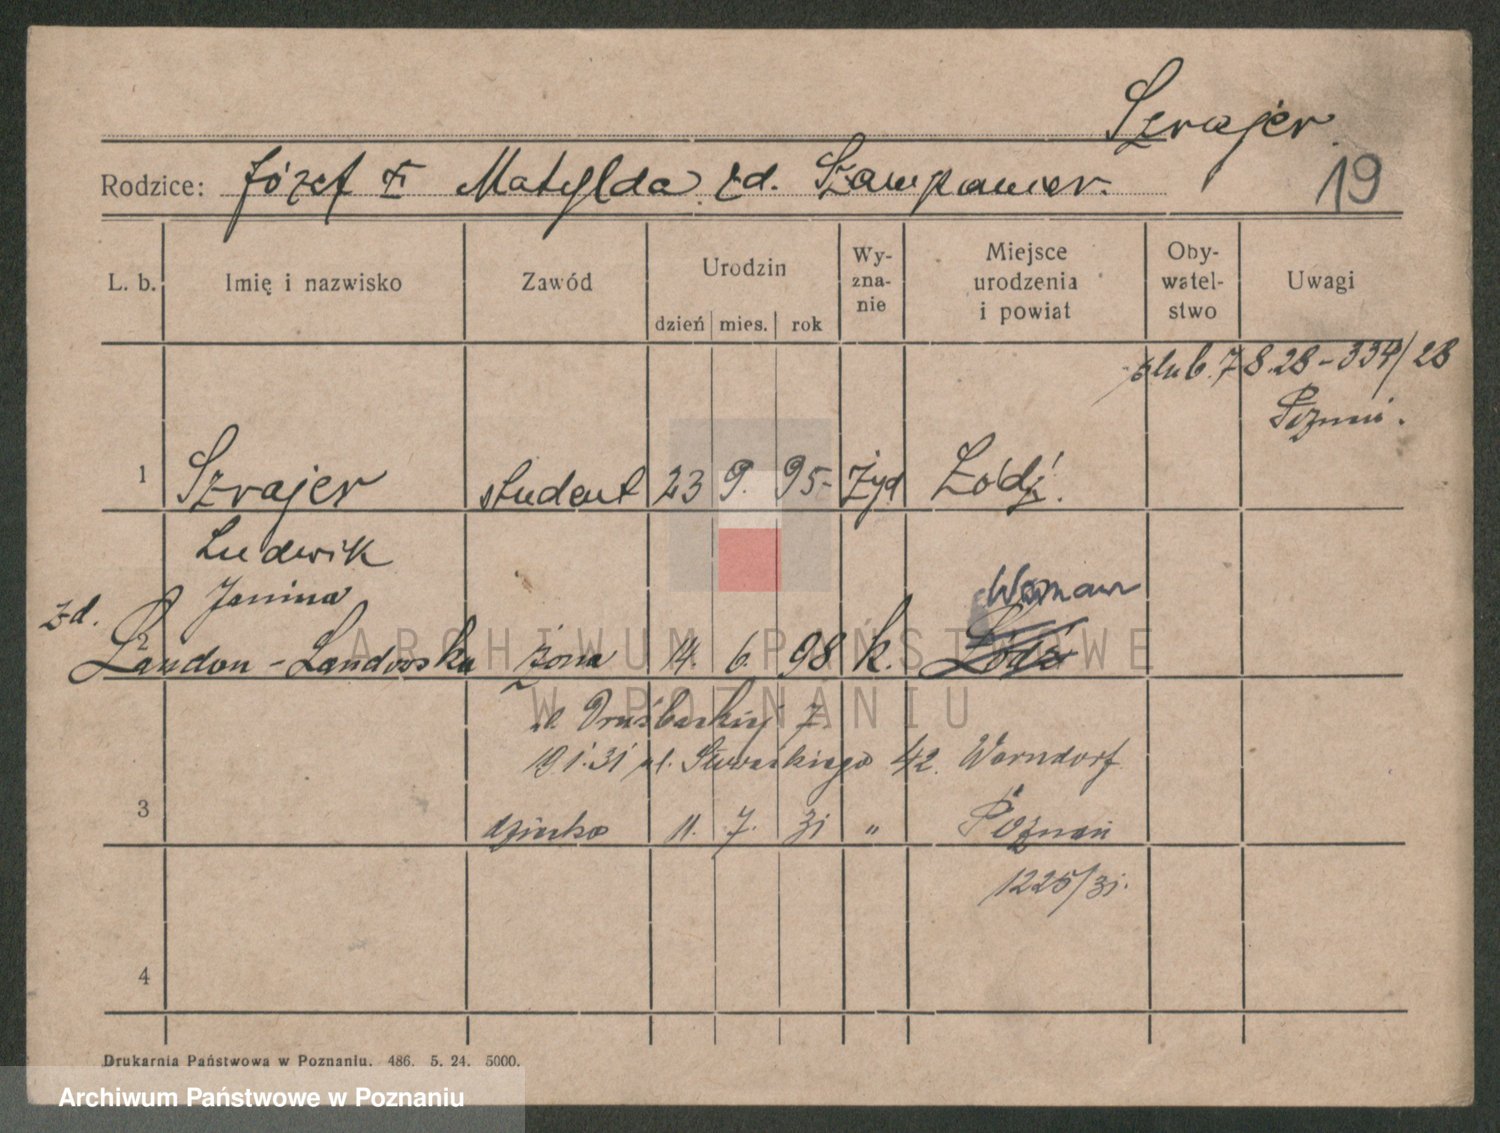 Szrajer.
19
Rodzice: Józef Matylda zd. Szampanier.
L. b. Imię i nazwisko Zawód Urodzin dzień mies. rok Wy-zna-nie Miejsce urodzenia i powiat Oby-watel-stwo Uwagi
ślub. 7 8.28 - 334/28
Poznań.
1 Szrajer student 23 9. 95- żyd Łódź.
Ludwik
Janina
Warszawa
zd. 2 Landau - Landowska żona 14. 6. 98 k. Łódź
ARCHIWUM PAŃSTWOWE
W POZNANIU
ul. 7.
19 1.31 ul. 42.
3 dziecko 11. 7. 31 " Poznań
1225/31.
4
Drukarnia Państwowa w Poznaniu. 486. 5. 24. 5000.
Archiwum Państwowe w Poznaniu